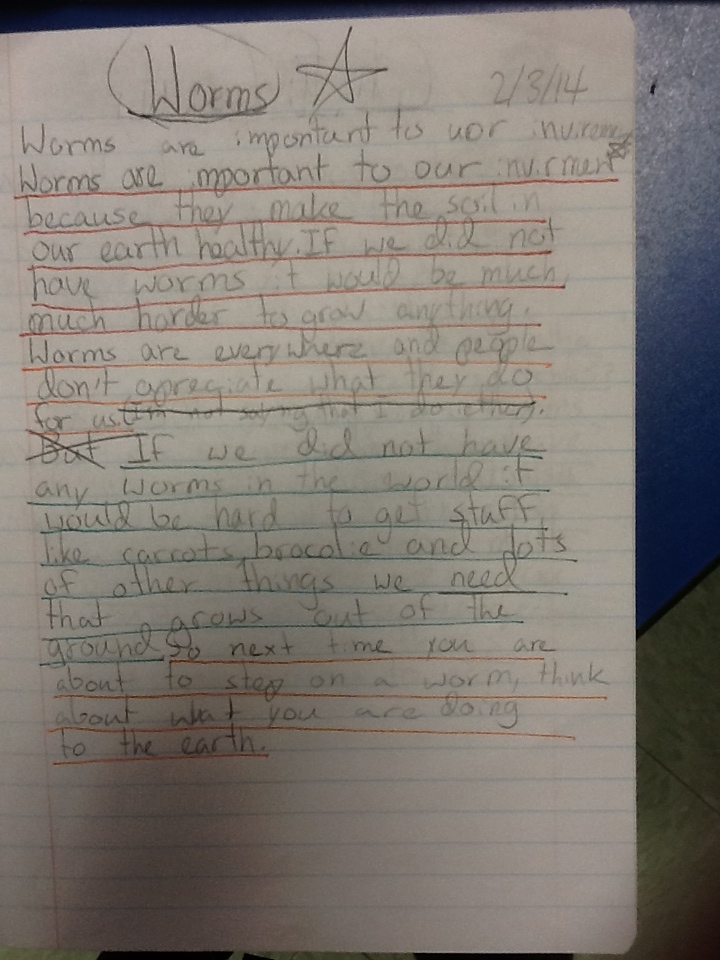 Worms
2/3/14
Worms are important to uor inviremen
Worms are mportant to our invirment
because they make the soil in
our earth healthy. If we did not
have worms it would be much
much harder to grow anything.
Worms are everywhere and people
don't apreciate what they do
for us. (I'm not saying that I do ether).
But If we did not have
any worms in the world it
would be hard to get stuff
like carrots, brocolie and lots
of other things we need
that grows out of the
ground So next time you are
about to step on a worm, think
about what you are doing
to the earth.